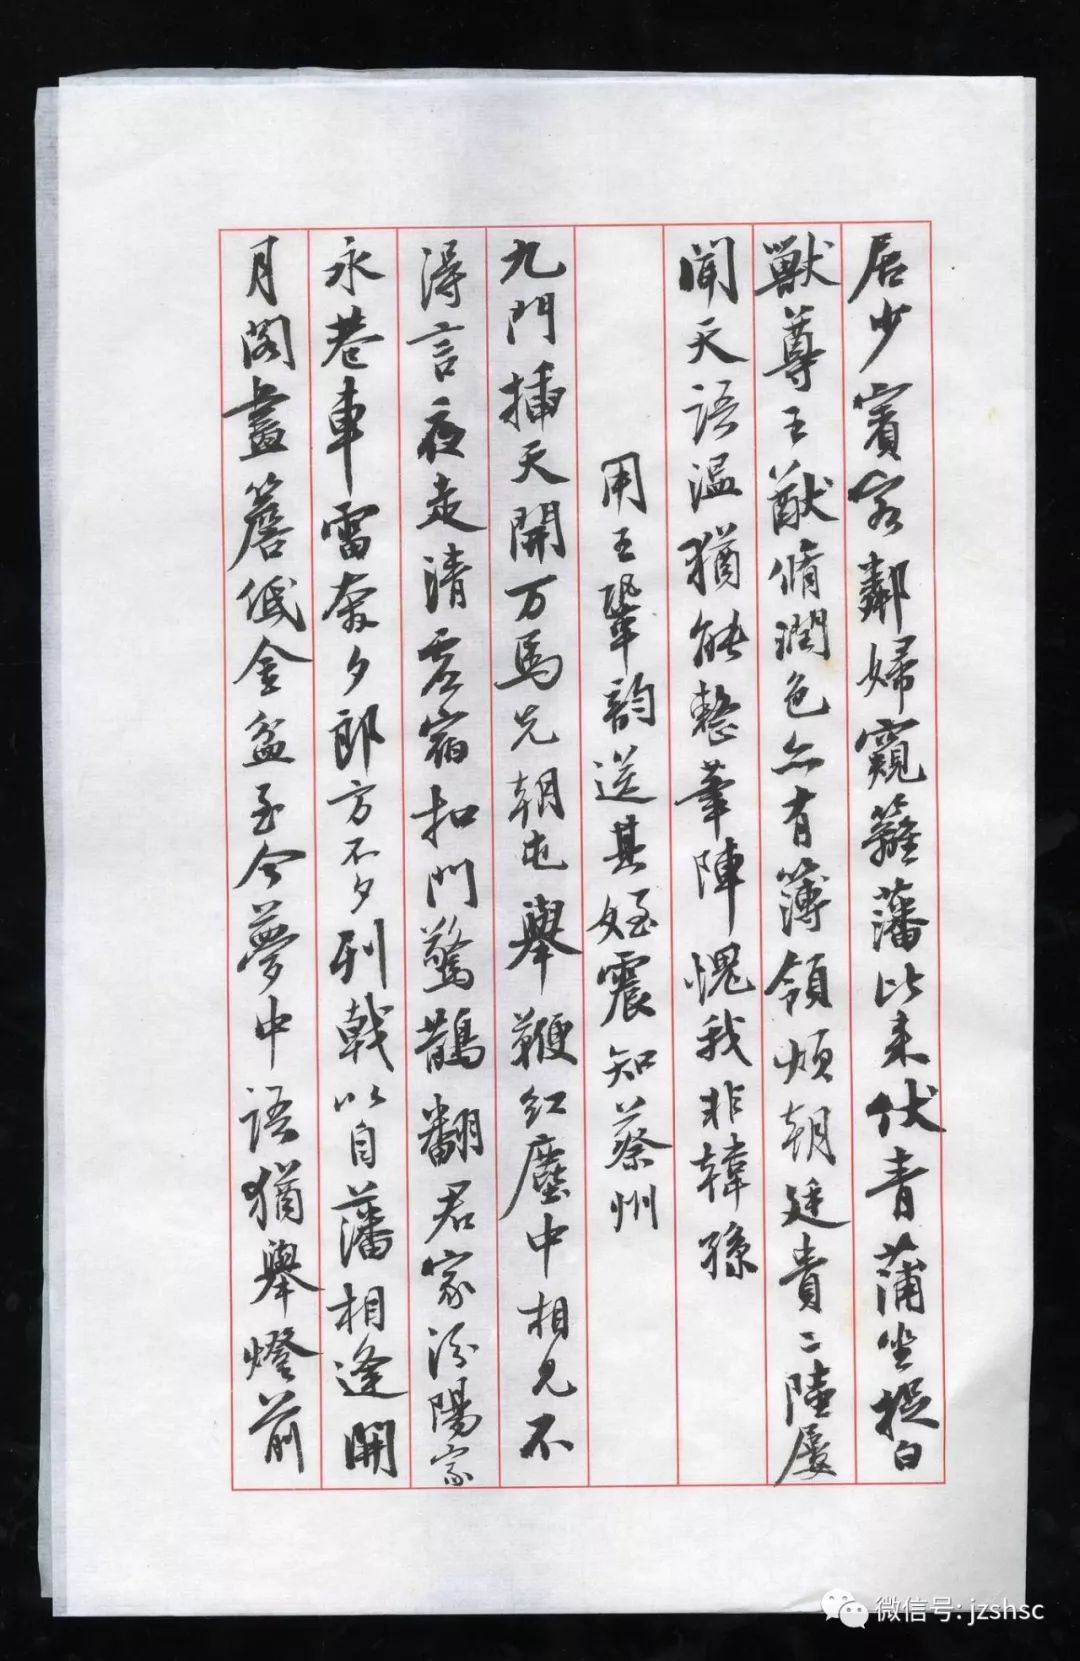 居少賓客鄰婦窺籬藩比来伏青蒲坐捉白
獸尊王猷脩潤色亦有簿領煩朝廷貴二陸屡
聞天語温猶能整筆陣愧我非韓孫
用王鞏韵送其姪震知蔡州
九門插天開万馬先朝屯舉鞭红塵中相見不
得言夜走清虚宿扣門驚鵲翻君家汾陽家
永巷車雷奔夕郎方不夕列戟以自藩相逢開
月閣畫簷低金盆至今夢中語猶舉燈前
微信号: jzshsc